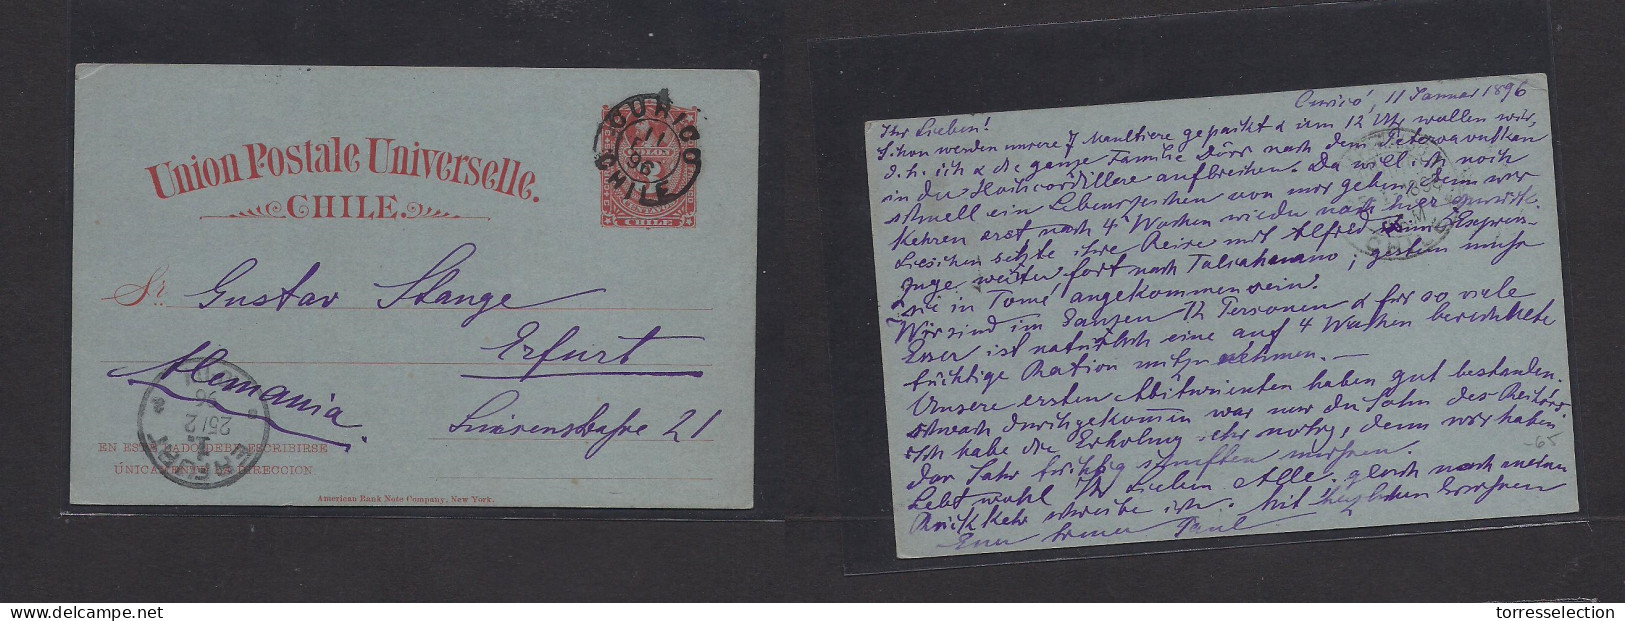 Union Postale Universelle.
CHILE
COLON
CENTAVOS
CHILE
CURICO
11
96
CHILE
Sr. Gustav Stange
Erfurt
Alemania.
Luisenstraße 21
ERFURT
25/2
96
EN ESTE LADO DEBE ESCRIBIRSE
ÚNICAMENTE LA DIRECCION
American Bank Note Company, New York.
Curicó, 11 Januar 1896
Ihr Lieben!
Schon werden unsere 7 Maultiere gepackt & um 12 Uhr wollen wir,
d.h. ich & die ganze Familie Dörr nach dem
in der Hochcordillere aufbrechen. Da will ich noch
schnell ein Lebenszeichen von mir geben, denn wir
kehren erst nach 4 Wochen wieder nach hier zurück.
Lieschen setzte ihre Reise mit Alfred im Express-
zuge weiter fort nach Talcahuano; gestern muss
sie in Tomé angekommen sein.
Wir sind im Ganzen 12 Personen & für so viele
Esser ist natürlich eine auf 4 Wochen berechnete
tüchtige Ration mitzunehmen. —
Unsere ersten Abiturienten haben gut bestanden.
schwach durchgekommen war nur der Sohn des
Ich habe die Erholung sehr nötig, denn wir haben
das Jahr tüchtig schuften müssen.
Lebt wohl Ihr Lieben Alle. gleich nach meiner
Rückkehr schreibe ich. Mit herzlichen Grüssen
Euer treuer Paul
-65
torresselection